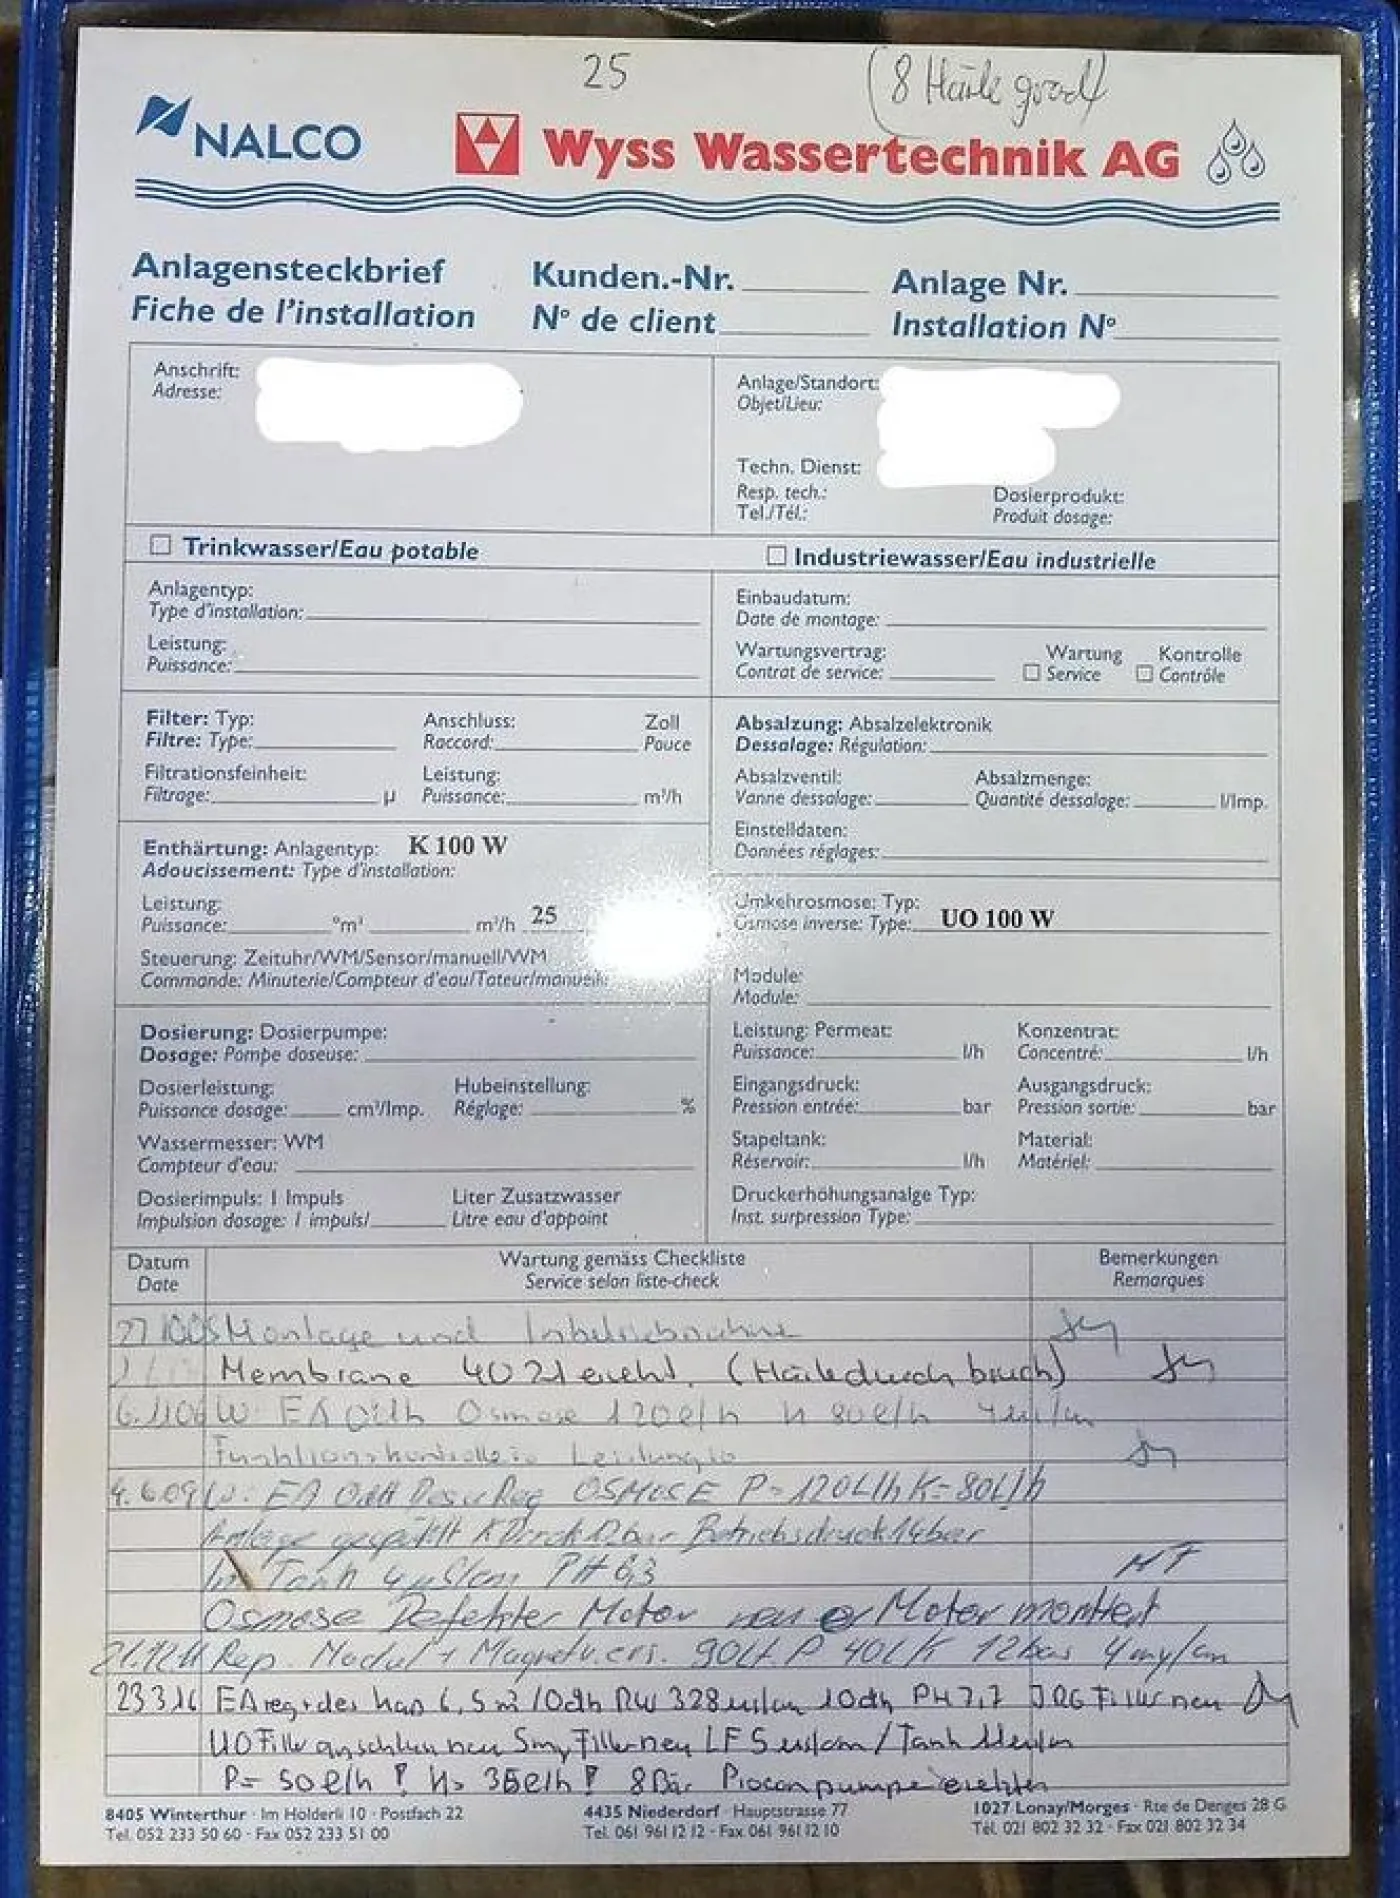 25 (8 Härte grad)
NALCO Wyss Wassertechnik AG
Anlagensteckbrief Kunden.-Nr. Anlage Nr.
Fiche de l'installation N° de client Installation N°
Anschrift:
Adresse:
Anlage/Standort:
Objet/Lieu:
Techn. Dienst:
Resp. tech.: Dosierprodukt:
Tel./Tél.: Produit dosage:
Trinkwasser/Eau potable Industriewasser/Eau industrielle
Anlagentyp:
Type d'installation:
Leistung:
Puissance:
Einbaudatum:
Date de montage:
Wartungsvertrag: Wartung Kontrolle
Contrat de service: Service Contrôle
Filter: Typ: Anschluss: Zoll
Filtre: Type: Raccord: Pouce
Filtrationsfeinheit: Leistung:
Filtrage: µ Puissance: m³/h
Absalzung: Absalzelektronik
Dessalage: Régulation:
Absalzventil: Absalzmenge:
Vanne dessalage: Quantité dessalage: l/Imp.
Einstelldaten:
Données réglages:
Enthärtung: Anlagentyp: K 100 W
Adoucissement: Type d'installation:
Leistung:
Puissance: °m³ m³/h 25
Steuerung: Zeituhr/WM/Sensor/manuell/WM
Commande: Minuterie/Compteur d'eau/Tateur/manuelle
Umkehrosmose: Typ:
Osmose inverse: Type: UO 100 W
Module:
Module:
Dosierung: Dosierpumpe:
Dosage: Pompe doseuse:
Dosierleistung: Hubeinstellung:
Puissance dosage: cm³/Imp. Réglage: %
Wassermesser: WM
Compteur d'eau:
Dosierimpuls: 1 Impuls Liter Zusatzwasser
Impulsion dosage: 1 impuls/ Litre eau d'appoint
Leistung: Permeat: Konzentrat:
Puissance: l/h Concentré: l/h
Eingangsdruck: Ausgangsdruck:
Pression entrée: bar Pression sortie: bar
Stapeltank: Material:
Réservoir: l/h Matériel:
Druckerhöhungsanalge Typ:
Inst. surpression Type:
Datum Wartung gemäss Checkliste Bemerkungen
Date Service selon liste-check Remarques
Montage und Inbetriebnahme
Membrane 4021 (Härtedurchbruch)
Osmose 120 l/h 80 l/h
Funktionskontrolle Leistung
4.6.09 W. EA OSMOSE P=120L/h K=80L/h
Anlage gespühlt 12bar Betriebsdruck 14bar
Im Tank 4 µS/cm PH 6,3
Osmose Defekter Motor neuer Motor montiert
21.12.11 Rep. Modul + 12bar
23.3.16 EA reg + des 10dh RW 328 10dh PH 7,7 Filter neu
UO Filter neu Filter neu LF 5 Tank
P= 50 l/h ! 35 l/h ! 8 Bar
8405 Winterthur · Im Hölderli 10 · Postfach 22
Tel. 052 233 50 60 - Fax 052 233 51 00
4435 Niederdorf · Hauptstrasse 77
Tel. 061 961 12 12 - Fax 061 961 12 10
1027 Lonay/Morges · Rte de Denges 28 G
Tél. 021 802 32 32 - Fax 021 802 32 34